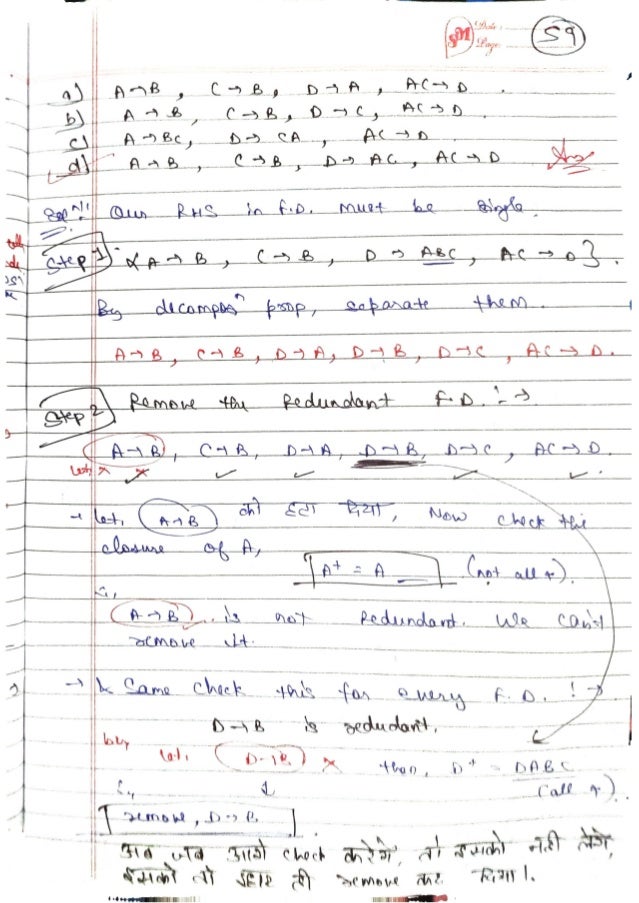 SM Date:
Page:
59
a) A→B , C→B , D→A , AC→D .
b) A→B , C→B , D→C , AC→D
c) A→BC, D→CA , AC→D
d) A→B , C→B , D→AC, AC→D Ans
Solⁿ!! Our RHS in F.D. must be single.
Step 1 {A→B , C→B , D→ABC, AC→D}.
By decomposⁿ prop, separate them.
A→B, C→B, D→A, D→B, D→C, AC→D.
Step 2 Remove the Redundant F.D. :→
A→B, C→B, D→A, D→B, D→C, AC→D.
let,
→ let, A→B को हटा दिया, Now check the
closure of A,
A⁺ = A (not all ↑).
A→B is not Redundant. We can't
remove it.
→ & Same check this for every F.D. !→
D→B is redudant.
let, D→B × then, D⁺ = DABC
(all ↑).
remove, D→B
अब जब आगे check करेंगे, तो इसको नही लेंगे,
इसको तो यहाँ ही remove कर दिया।.